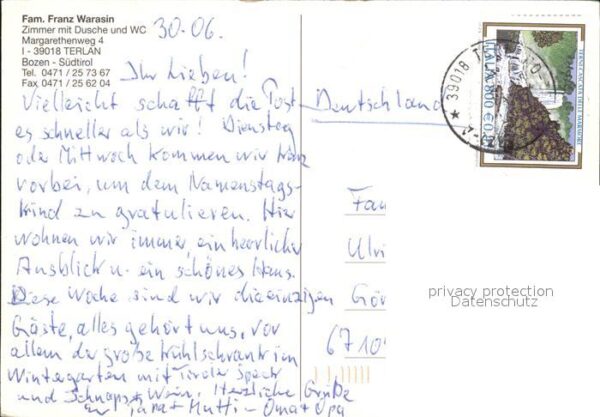 Fam. Franz Warasin
Zimmer mit Dusche und WC
Margarethenweg 4
I - 39018 TERLAN
Bozen - Südtirol
Tel. 0471 / 25 73 67
Fax 0471 / 25 62 04
30.06.
Ihr Lieben!
Vielleicht schafft die Post
es schneller als wir! Dienstag
oder Mittwoch kommen wir kurz
vorbei, um dem Namenstags-
kind zu gratulieren. Hier
wohnen wir immer, ein herrlicher
Ausblick u. ein schönes Haus.
Diese Woche sind wir die einzigen
Gäste, alles gehört uns, vor
allem der große Kühlschrank im
Wintergarten mit Tiroler Speck
und Schnaps + Wein. Herzliche Grüße
Papa + Mutti - Oma + Opa
Deutschland
Fam
Ulri
Gör
6710
39018
ITALIA 800 € 0,41
TERNI-CASCATA DELLE MARMORE
privacy protection
Datenschutz